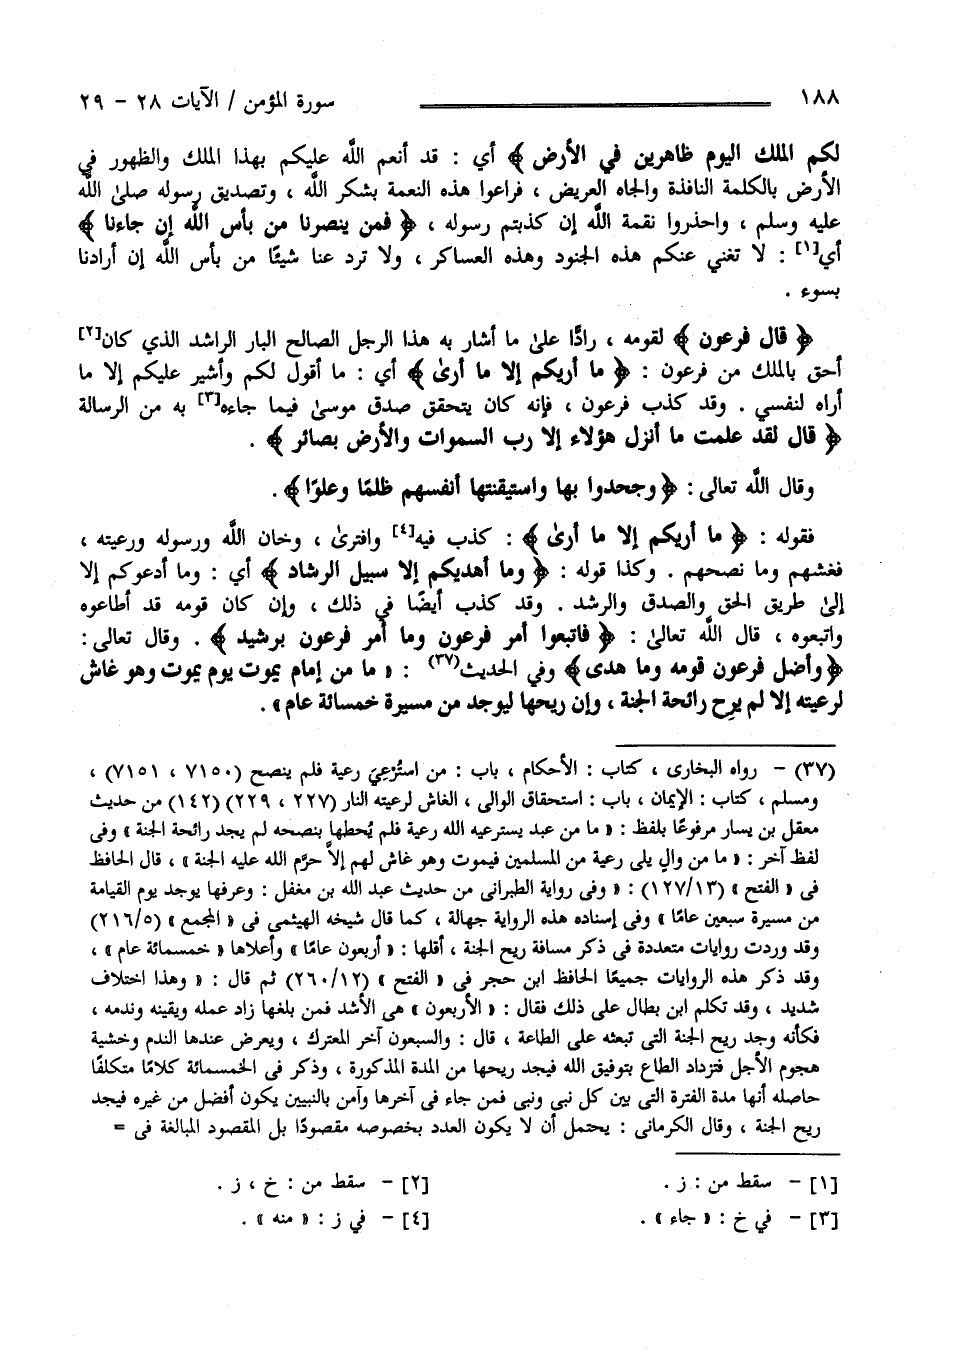 ١٨٨ سورة المؤمن / الآيات ٢٨ - ٢٩
لكم الملك اليوم ظاهرين في الأرض ﴾ أي : قد أنعم اللَّه عليكم بهذا الملك والظهور في
الأرض بالكلمة النافذة والجاه العريض ، فراعوا هذه النعمة بشكر اللَّه ، وتصديق رسوله صلىٰ اللَّه
عليه وسلم ، واحذروا نقمة اللَّه إن كذبتم رسوله ، ﴿ فمن ينصرنا من بأس اللَّه إن جاءنا ﴾
أي[١] : لا تغني عنكم هذه الجنود وهذه العساكر ، ولا ترد عنا شيئًا من بأس اللَّه إن أرادنا
بسوء .
﴿ قال فرعون ﴾ لقومه ، رادًّا علىٰ ما أشار به هذا الرجل الصالح البار الراشد الذي كان[٢]
أحق بالملك من فرعون : ﴿ ما أريكم إلا ما أرىٰ ﴾ أي : ما أقول لكم وأشير عليكم إلا ما
أراه لنفسي . وقد كذب فرعون ، فإنه كان يتحقق صدق موسىٰ فيما جاءه[٣] به من الرسالة
﴿ قال لقد علمت ما أنزل هؤلاء إلا رب السموات والأرض بصائر ﴾ .
وقال اللَّه تعالى : ﴿وجحدوا بها واستيقنتها أنفسهم ظلمًا وعلوًا﴾ .
فقوله : ﴿ ما أريكم إلا ما أرىٰ ﴾ : كذب فيه[٤] وافترىٰ ، وخان اللَّه ورسوله ورعيته ،
فغشهم وما نصحهم . وكذا قوله : ﴿ وما أهديكم إلا سبيل الرشاد ﴾ أي : وما أدعوكم إلا
إلىٰ طريق الحق والصدق والرشد . وقد كذب أيضًا في ذلك ، وإن كان قومه قد أطاعوه
واتبعوه ، قال اللَّه تعالىٰ : ﴿ فاتبعوا أمر فرعون وما أمر فرعون برشيد ﴾ . وقال تعالى :
﴿وأضل فرعون قومه وما هدى﴾ وفي الحديث(٣٧) : « ما من إمام يموت يوم يموت وهو غاش
لرعيته إلا لم يرح رائحة الجنة ، وإن ريحها ليوجد من مسيرة خمسمائة عام» .
(٣٧) - رواه البخارى ، كتاب : الأحكام ، باب : من استُرْعِيَ رعية فلم ينصح (٧١٥٠ ، ٧١٥١) ،
ومسلم ، كتاب : الإيمان ، باب : استحقاق الوالى ، الغاش لرعيته النار (٢٢٧ ، ٢٢٩) (١٤٢) من حديث
معقل بن يسار مرفوعًا بلفظ : « ما من عبد يسترعيه الله رعية فلم يُحطها بنصحه لم يجد رائحة الجنة » وفى
لفظ آخر : « ما من والٍ يلى رعية من المسلمين فيموت وهو غاش لهم إلاَّ حرَّم الله عليه الجنة » ، قال الحافظ
فى « الفتح » (١٢٧/١٣) : « وفى رواية الطبرانى من حديث عبد الله بن مغفل : وعرفها يوجد يوم القيامة
من مسيرة سبعين عامًا » وفى إسناده هذه الرواية جهالة ، كما قال شيخه الهيثمى فى « المجمع » (٢١٦/٥)
وقد وردت روايات متعددة فى ذكر مسافة ريح الجنة ، أقلها : « أربعون عامًا » وأعلاها « خمسمائة عام » ،
وقد ذكر هذه الروايات جميعًا الحافظ ابن حجر فى « الفتح » (٢٦٠/١٢) ثم قال : « وهذا اختلاف
شديد ، وقد تكلم ابن بطال على ذلك فقال : « الأربعون » هى الأشد فمن بلغها زاد عمله ويقينه وندمه ،
فكأنه وجد ريح الجنة التى تبعثه على الطاعة ، قال : والسبعون آخر المعترك ، ويعرض عندها الندم وخشية
هجوم الأجل فتزداد الطاع بتوفيق الله فيجد ريحها من المدة المذكورة ، وذكر فى الخمسمائة كلامًا متكلفًا
حاصله أنها مدة الفترة التى بين كل نبى ونبى فمن جاء فى آخرها وآمن بالنبيين يكون أفضل من غيره فيجد
ريح الجنة ، وقال الكرمانى : يحتمل أن لا يكون العدد بخصوصه مقصودًا بل المقصود المبالغة فى =
[١] - سقط من : ز . [٢] - سقط من : خ ، ز .
[٣] - في خ : « جاء » . [٤] - في ز : « منه » .